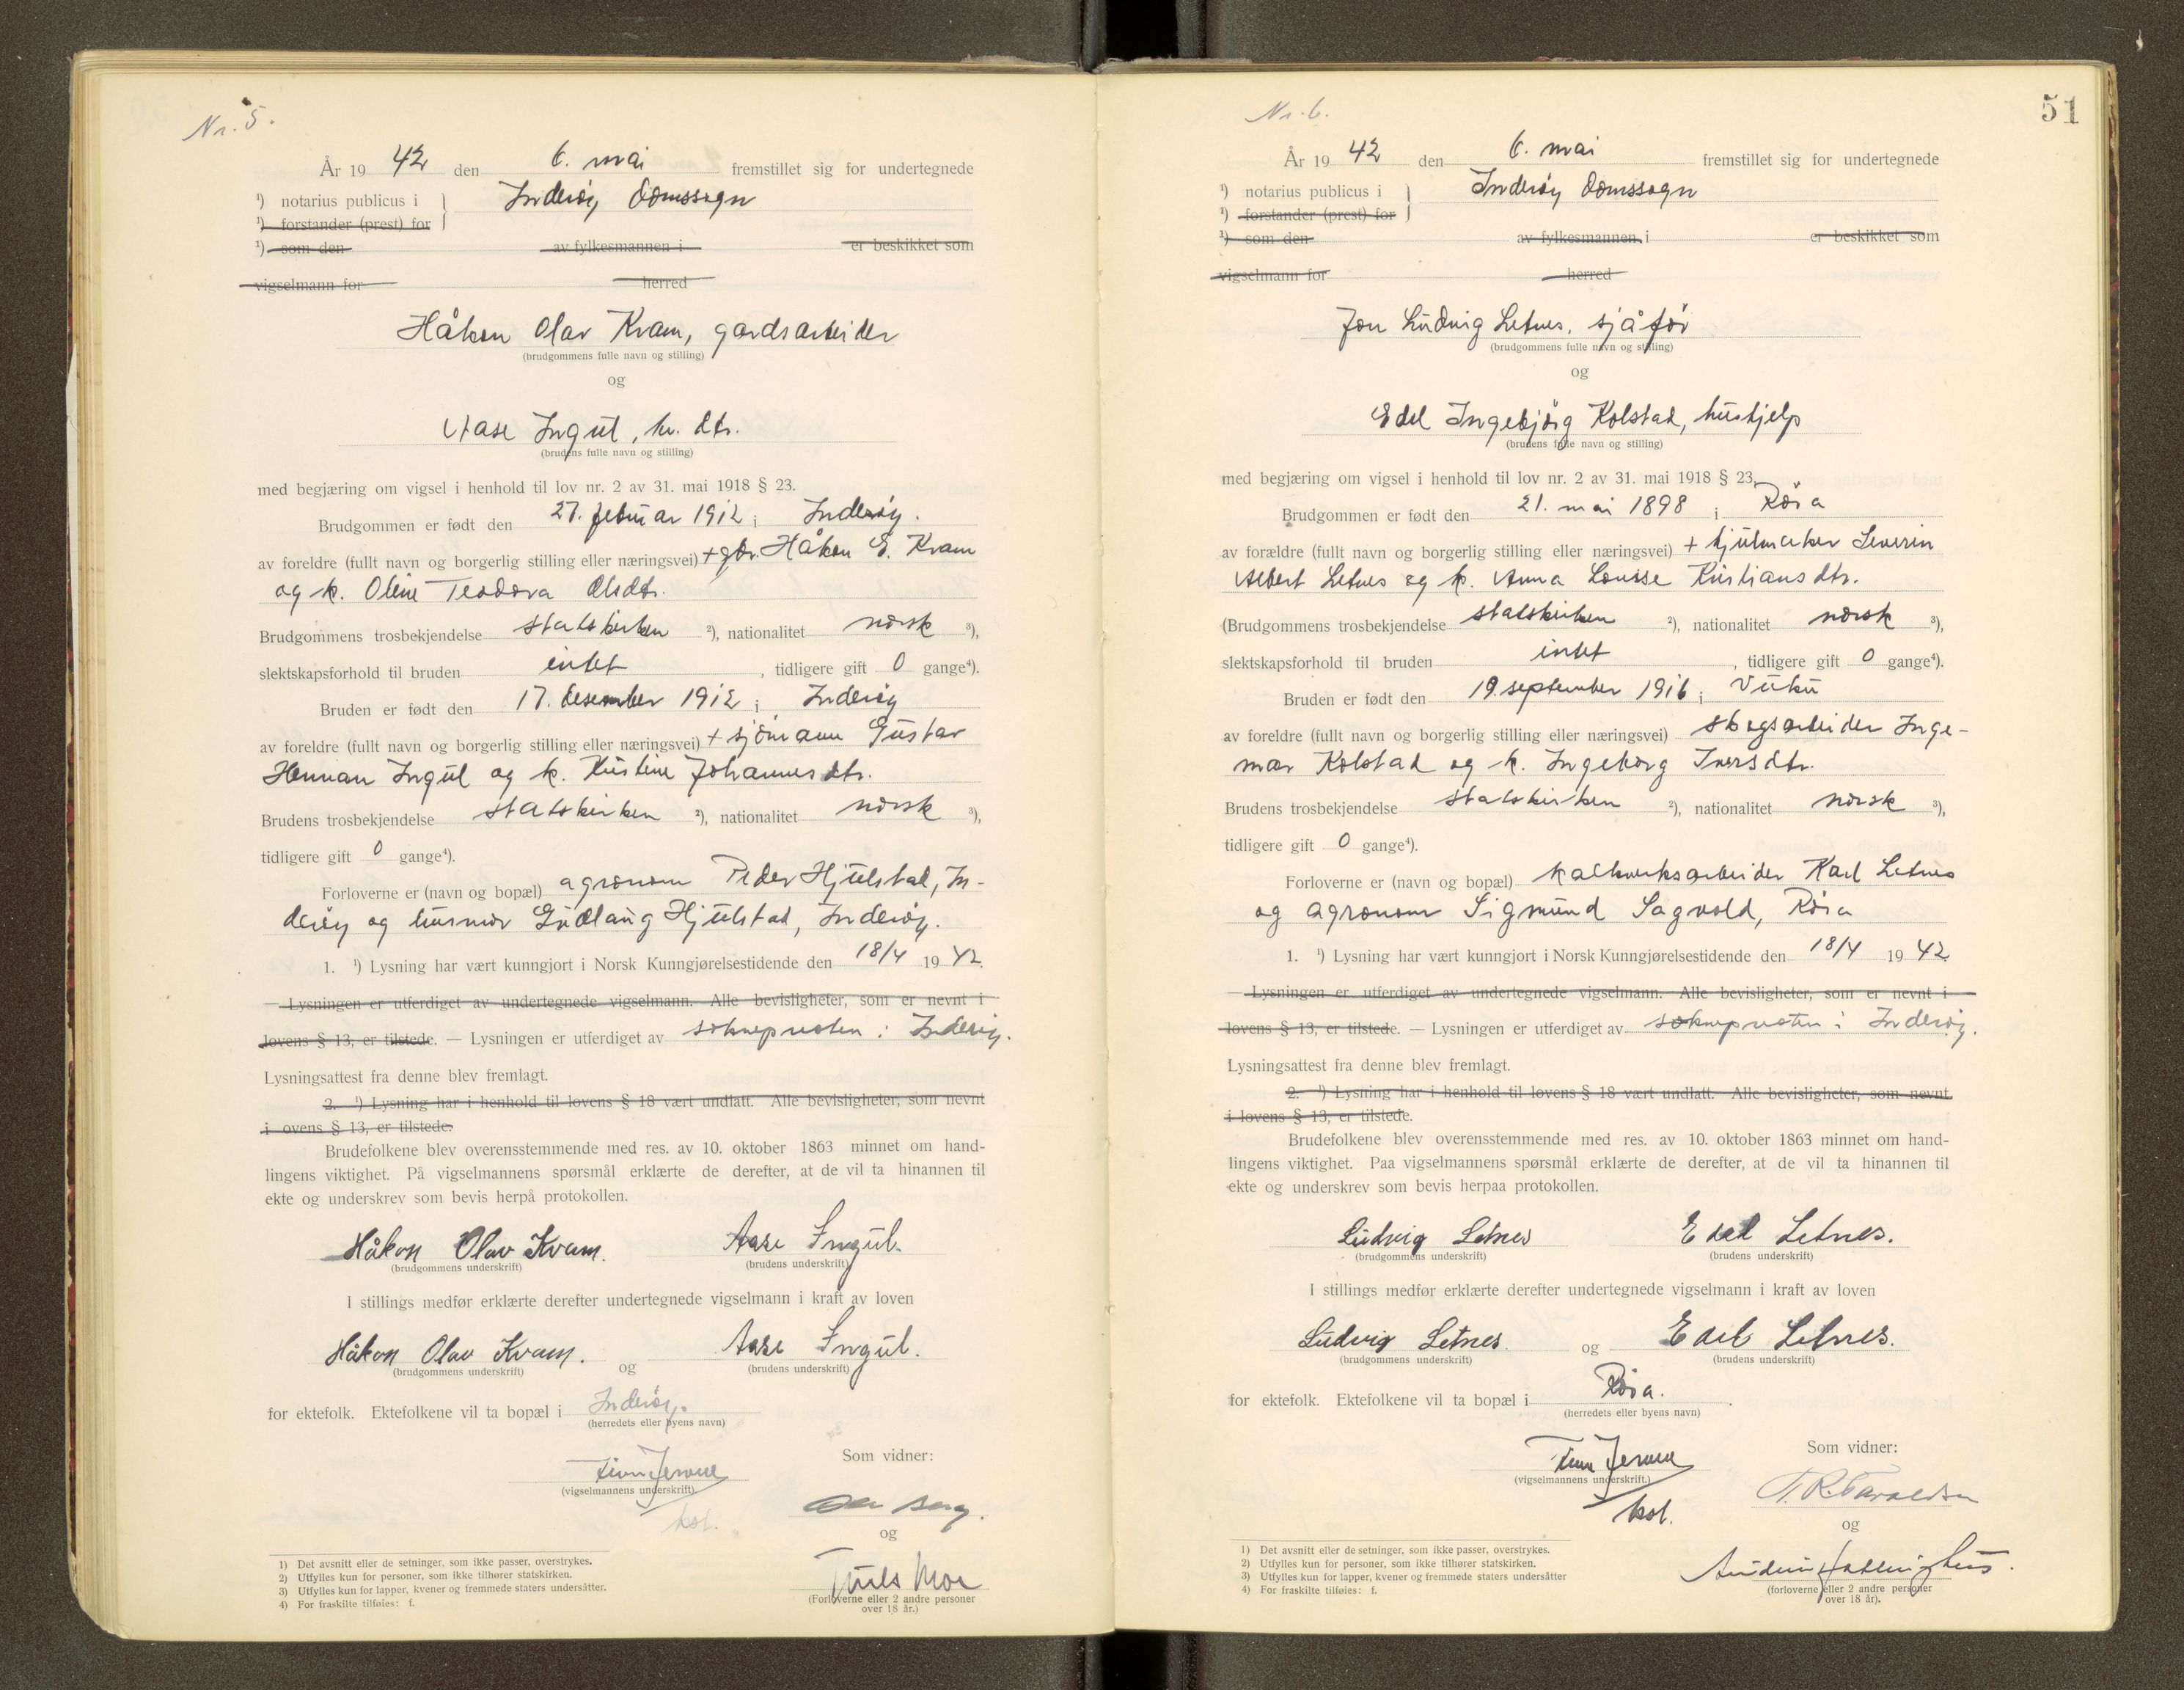 Nr. 5.
År 19 42 den 6. mai fremstillet sig for undertegnede
¹) notarius publicus i Inderøy domssogn
¹) forstander (prest) for
¹) som den av fylkesmannen i er beskikket som
vigselmann for herred
Håkon Olav Kvam, gardsarbeider
(brudgommens fulle navn og stilling)
og
Aase Ingul, hr. dtr.
(brudens fulle navn og stilling)
med begjæring om vigsel i henhold til lov nr. 2 av 31. mai 1918 § 23.
Brudgommen er født den 27. februar 1912 i Inderøy.
av foreldre (fullt navn og borgerlig stilling eller næringsvei) + gbr. Håkon E. Kvam
og k. Oline Teodora Olsdtr.
Brudgommens trosbekjendelse statskirken ²), nationalitet norsk ³),
slektskapsforhold til bruden intet, tidligere gift 0 gange⁴).
Bruden er født den 17. desember 1912 i Inderøy
av foreldre (fullt navn og borgerlig stilling eller næringsvei) + sjømann Gustav
Herman Ingul og k. Kristine Johannesdtr.
Brudens trosbekjendelse statskirken ²), nationalitet norsk ³),
tidligere gift 0 gange⁴).
Forloverne er (navn og bopæl) agronom Peder Hjulstad, In-
derøy og husmor Gudlaug Hjulstad, Inderøy.
1. ¹) Lysning har vært kunngjort i Norsk Kunngjørelsestidende den 18/4 1942.
— Lysningen er utferdiget av undertegnede vigselmann. Alle bevisligheter, som er nevnt i
lovens § 13, er tilstede. — Lysningen er utferdiget av soknepresten i Inderøy.
Lysningsattest fra denne blev fremlagt.
2. ¹) Lysning har i henhold til lovens § 18 vært undlatt. Alle bevisligheter, som nevnt
i ovens § 13, er tilstede.
Brudefolkene blev overensstemmende med res. av 10. oktober 1863 minnet om hand-
lingens viktighet. På vigselmannens spørsmål erklærte de derefter, at de vil ta hinannen til
ekte og underskrev som bevis herpå protokollen.
Håkon Olav Kvam. Aase Ingul.
(brudgommens underskrift) (brudens underskrift)
I stillings medfør erklærte derefter undertegnede vigselmann i kraft av loven
Håkon Olav Kvam. og Aase Ingul.
(brudgommens underskrift) (brudens underskrift)
for ektefolk. Ektefolkene vil ta bopæl i Inderøy.
(herredets eller byens navn)
Som vidner:
Finn
(vigselmannens underskrift)
kst.
og
Moe
(Forloverne eller 2 andre personer
over 18 år.)
1) Det avsnitt eller de setninger, som ikke passer, overstrykes.
2) Utfylles kun for personer, som ikke tilhører statskirken.
3) Utfylles kun for lapper, kvener og fremmede staters undersåtter.
4) For fraskilte tilføies: f.
51
Nr. 6.
År 19 42 den 6. mai fremstillet sig for undertegnede
¹) notarius publicus i Inderøy domssogn
¹) forstander (prest) for
¹) som den av fylkesmannen i er beskikket som
vigselmann for herred
Jon Ludvig Letnes, sjåfør
(brudgommens fulle navn og stilling)
og
Edel Ingebjörg Kolstad, hushjelp
(brudens fulle navn og stilling)
med begjæring om vigsel i henhold til lov nr. 2 av 31. mai 1918 § 23.
Brudgommen er født den 21. mai 1898 i Röra
av forældre (fullt navn og borgerlig stilling eller næringsvei) + hjulmaker Severin
Albert Letnes og k. Anna Lovise Kristiansdtr.
(Brudgommens trosbekjendelse statskirken ²), nationalitet norsk ³),
slektskapsforhold til bruden intet, tidligere gift 0 gange⁴).
Bruden er født den 19. september 1916 i Vuku
av foreldre (fullt navn og borgerlig stilling eller næringsvei) skogsarbeider Inge-
mar Kolstad og k. Ingeborg Iversdtr.
Brudens trosbekjendelse statskirken ²), nationalitet norsk ³),
tidligere gift 0 gange⁴).
Forloverne er (navn og bopæl) kalkverksarbeider Karl Letnes
og agronom Sigmund Sagvold, Röra
1. ¹) Lysning har vært kunngjort i Norsk Kunngjørelsestidende den 18/4 1942
— Lysningen er utferdiget av undertegnede vigselmann. Alle bevisligheter, som er nevnt i
lovens § 13, er tilstede. — Lysningen er utferdiget av soknepresten i Inderøy.
Lysningsattest fra denne blev fremlagt.
2. ¹) Lysning har i henhold til lovens § 18 vært undlatt. Alle bevisligheter, som nevnt
i lovens § 13, er tilstede.
Brudefolkene blev overensstemmende med res. av 10. oktober 1863 minnet om hand-
lingens viktighet. Paa vigselmannens spørsmål erklærte de derefter, at de vil ta hinannen til
ekte og underskrev som bevis herpaa protokollen.
Ludvig Letnes Edel Letnes.
(brudgommens underskrift) (brudens underskrift)
I stillings medfør erklærte derefter undertegnede vigselmann i kraft av loven
Ludvig Letnes og Edel Letnes.
(brudgommens underskrift) (brudens underskrift)
for ektefolk. Ektefolkene vil ta bopæl i Röra.
(herredets eller byens navn)
Som vidner:
Finn
(vigselmannens underskrift.)
kst.
og
(forloverne eller 2 andre personer
over 18 år).
1) Det avsnitt eller de setninger, som ikke passer, overstrykes.
2) Utfylles kun for personer, som ikke tilhører statskirken.
3) Utfylles kun for lapper, kvener og fremmede staters undersåtter
4) For fraskilte tilføies: f.